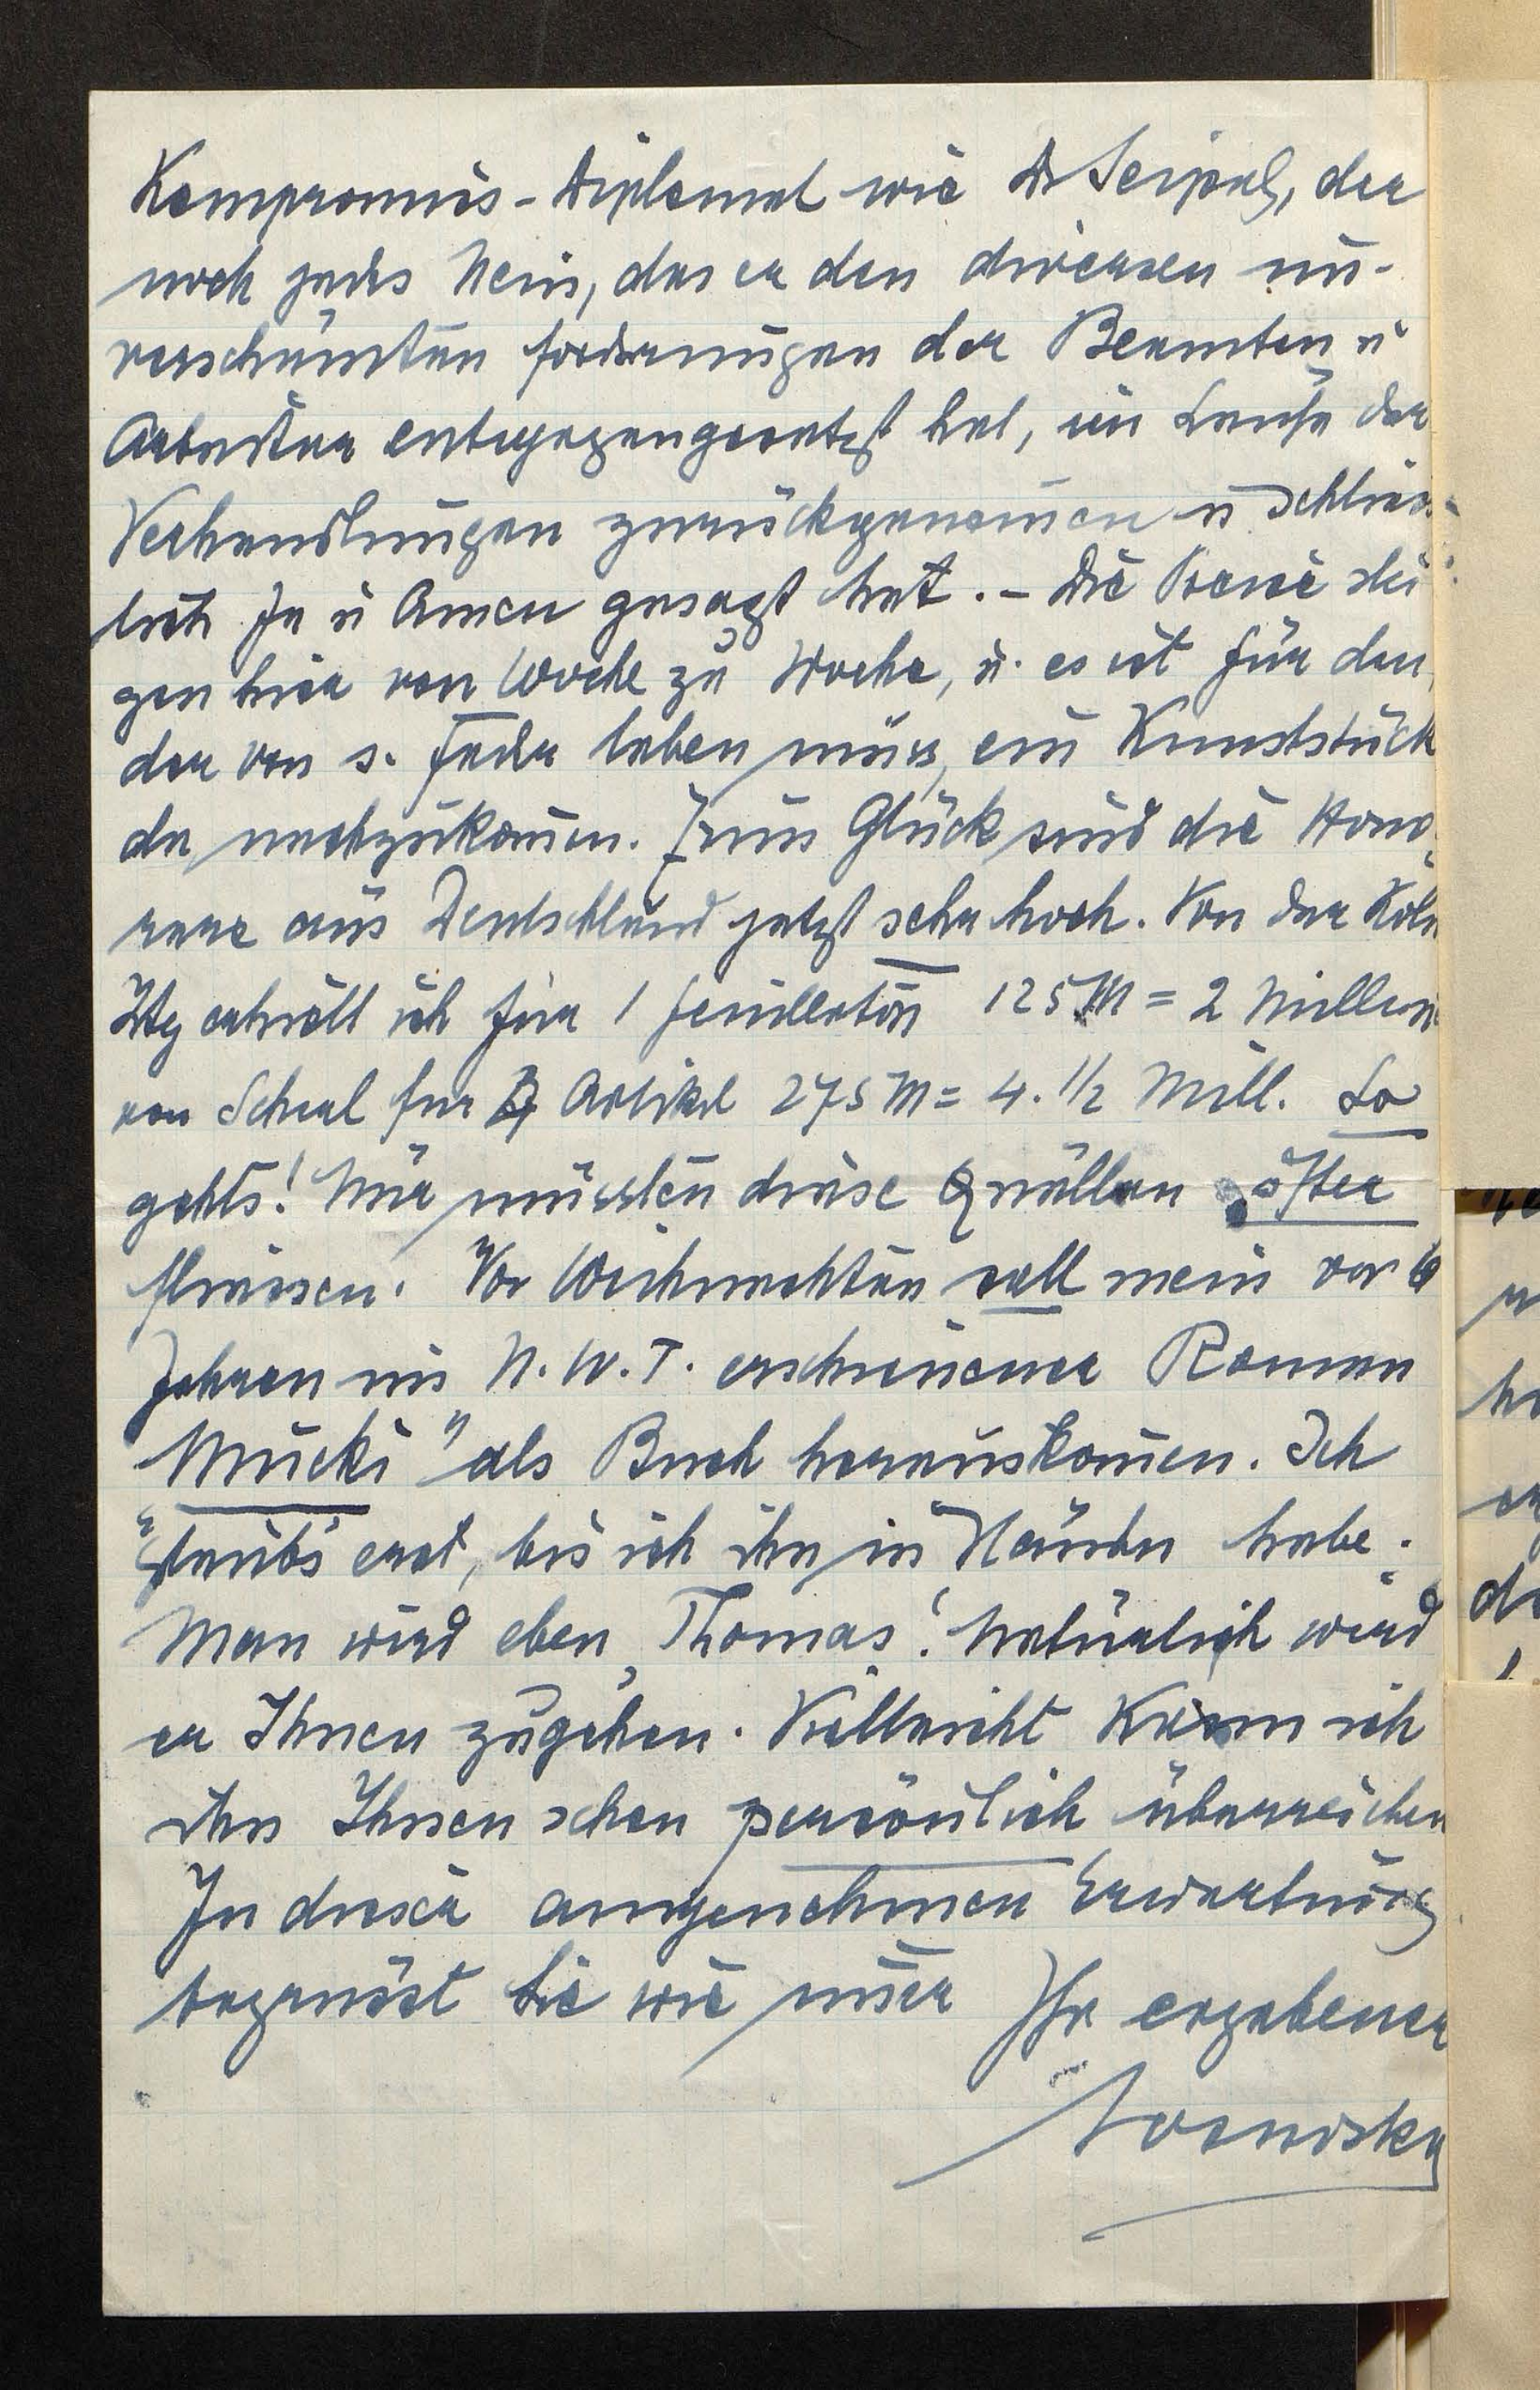 Kompromis-Diplomat wie Dr Seipel, der
noch jedes Nein, das er den diversen un-
verschämten Forderungen der Beamten u
Arbeiter entgegengesetzt hat, im Laufe der
Verhandlungen zurückgenom̄en u schliess-
lich Ja u Amen gesagt hat. - Die Preise stei
gen hier von Woche zu Woche, u. es ist für den,
der von s. Feder leben muss, ein Kunststück
da nachzukom̄en. Zum Glück sind die Hono-
rare aus Deutschland jetzt sehr hoch. Von der Köln
Ztg erhielt ich für 1 Feuilleton 125 M = 2 Million
von Scherl für Artikel 275 M = 4.1/2 Mill. So
gehts! Nur müssten diese Quellen öfter
fliessen. Vor Weihnachten soll mein vor 6
Jahren im N.W.T. erschienener Roman
"Mucki" als Buch herauskom̄en. Ich
glaub's erst, bis ich ihn in Händen habe.
Man wird eben Thomas! Natürlich wird
er Ihnen zugehen. Vielleicht kann ich
ihn Ihnen schon persönlich überreichen
In dieser angenehmen Erwartung
begrüsst Sie wie im̄er Ihr ergebener